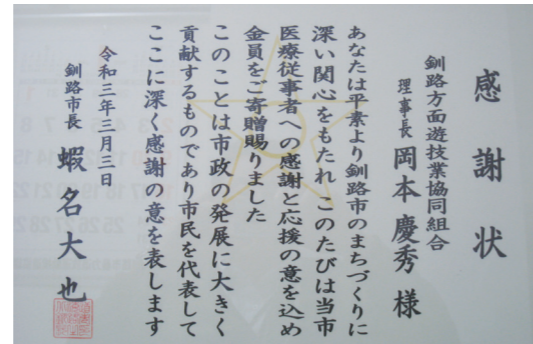 感謝状
釧路方面遊技業協同組合
理事長 岡本慶秀 様
あなたは平素より釧路市のまちづくりに
深い関心をもたれ このたびは当市
医療従事者への感謝と応援の意を込め
金員をご寄贈賜りました
このことは市政の発展に大きく
貢献するものであり市民を代表して
ここに深く感謝の意を表します
令和三年三月三日
釧路市長 蝦名大也